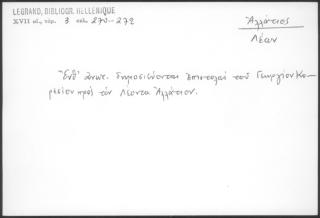 LEGRAND, BIBLIOGR. HELLENIQUE
XVII αἰ., τόμ. 3 σελ. 270-272
Ἀλλάτιος
Λέων
Ἔνθ' ἀνωτ. δημοσιεύονται ἐπιστολαί τοῦ Γεωργίου Κο-
ρεσίου πρός τόν Λέοντα Ἀλλάτιον.